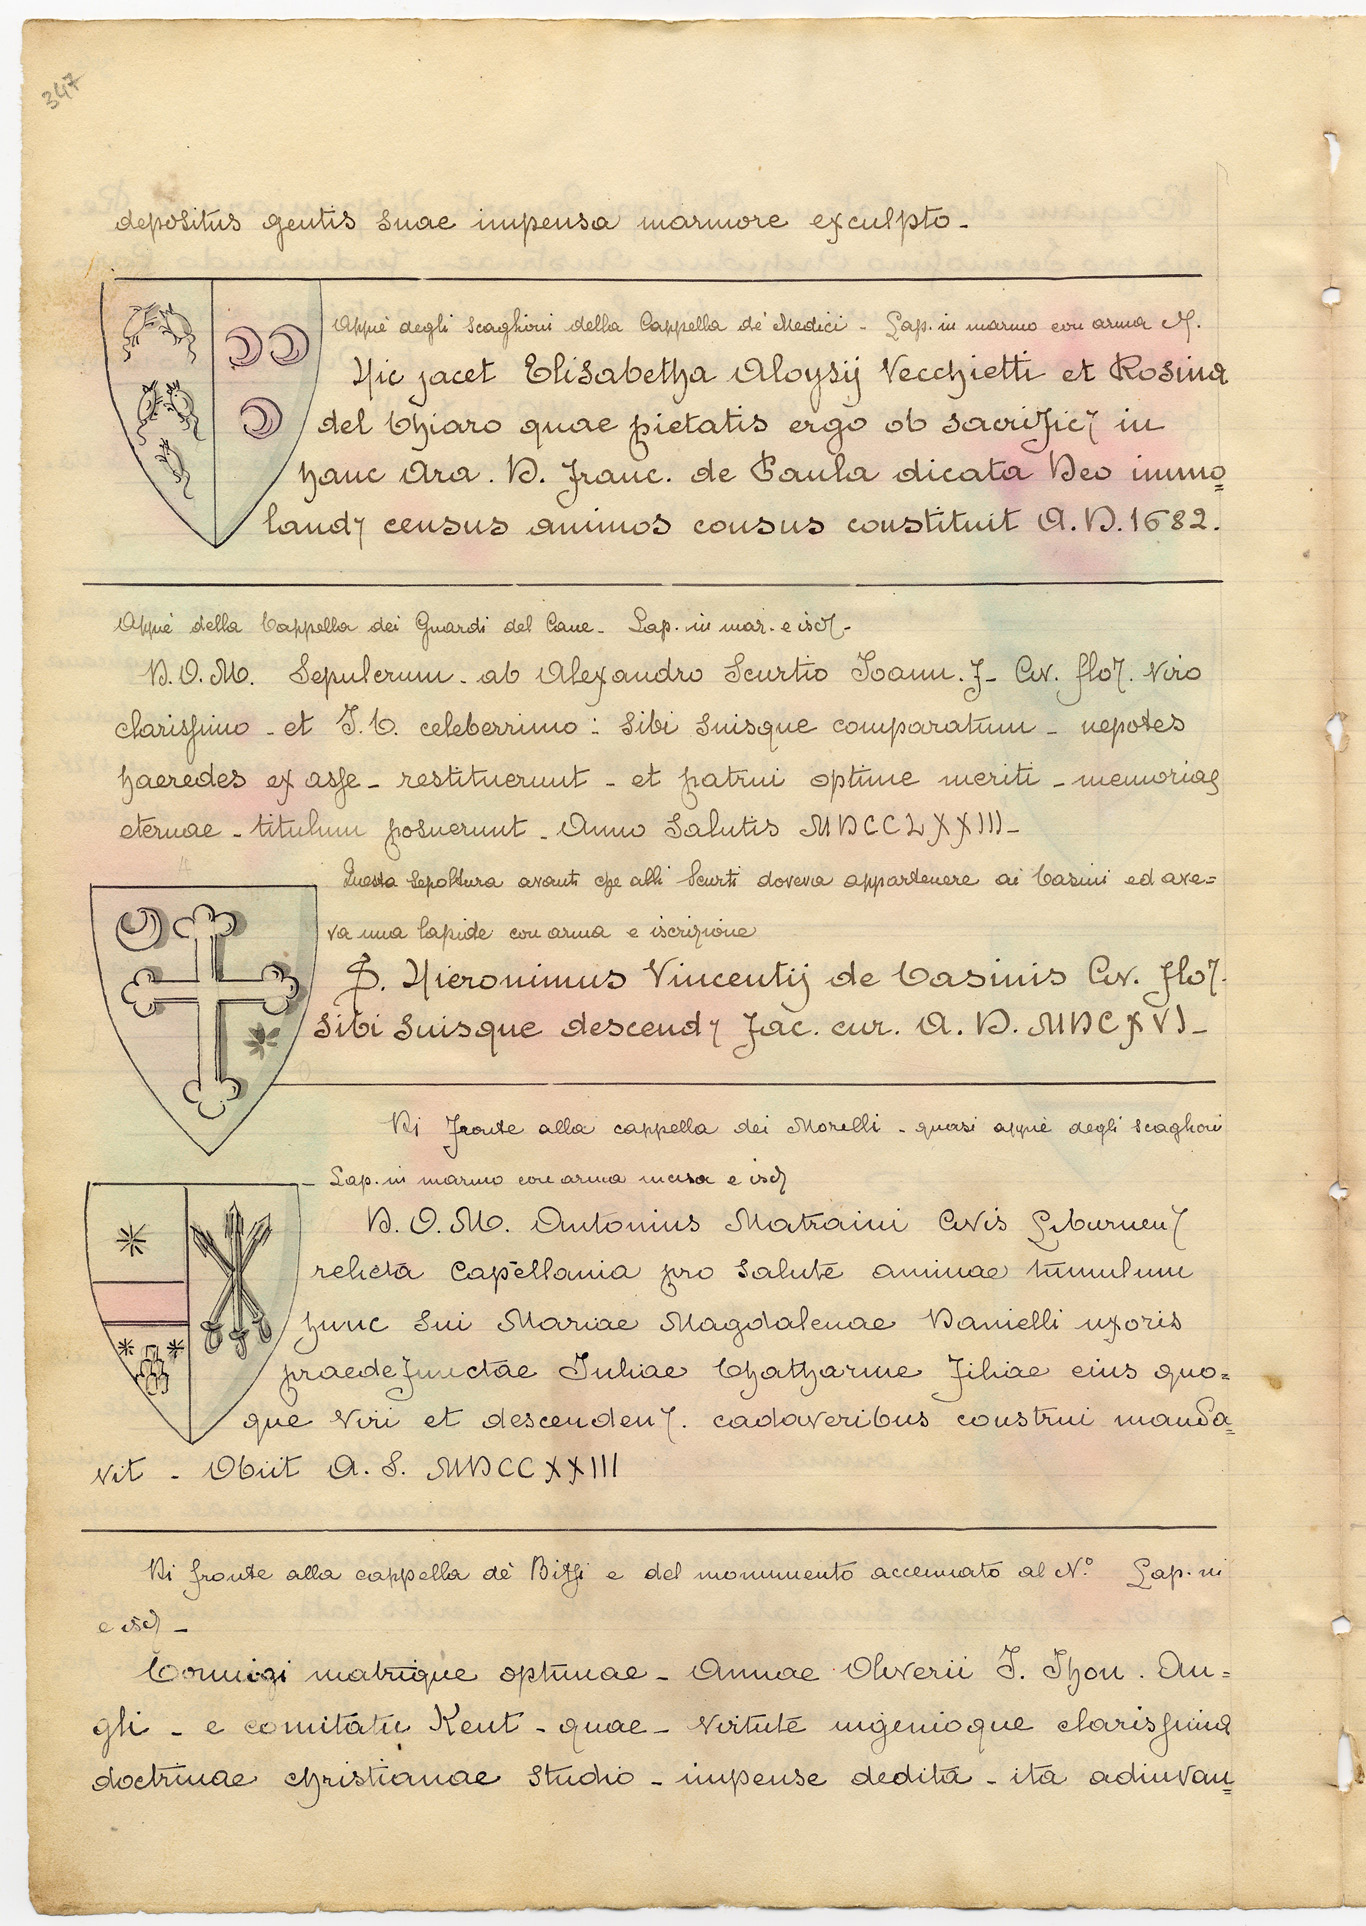 347
depositus gentis suae impensa marmore exculpto -
Appiè degli scaglioni della Cappella de' Medici - Lap. in marmo con arma
Hic jacet Elisabetha Aloysij Vecchietti et Rosina
del Chiaro quae pietatis ergo ob sacrific in
hanc Ara . D. Franc. de Paula dicata Deo immo=
land census animos consus constituit A.D. 1682.
Appiè della Cappella dei Guardi del Cane - Lap. in mar. e isc -
D.O.M. Sepulcrum - ab Alexandro Scurtio Ioann. F - Civ. flo. viro
clarissimo - et I.C. celeberrimo : sibi suisque comparatum - nepotes
haeredes ex asse - restituerunt - et patrui optime meriti - memoriae
eternae - titulum posuerunt - Anno Salutis MDCCLXXIII -
Questa sepoltura avanti che alli Scurti doveva appartenere ai Casini ed ave=
va una lapide con arma e iscrizione
S. Hieronimus Vincentij de Casinis Civ. flo.
sibi suisque descend fac. cur. A. D. MDCXVI -
Di fronte alla cappella dei Morelli - quasi appiè degli scaglioni
Lap. in marmo con arma incisa e isc
D. O. M. Antonius Matraini Civis Liburnen
relicta Capellania pro salute animae tumulum
hunc sui Mariae Magdalenae Danielli uxoris
praedefunctae Iuliae Chatharine filiae eius quo=
que viri et descenden . cadaveribus construi manda=
vit - Obiit A. S. MDCCXXIII
Di fronte alla cappella de' Biffi e del monumento accennato al N.o Lap. in
e isc -
Coniugi matrique optimae - Annae Oliverii I. Thon . An=
gli - e comitatu Kent - quae - virtute ingenioque clarissima
doctrinae christianae studio - impense dedita - ita adiuvan=